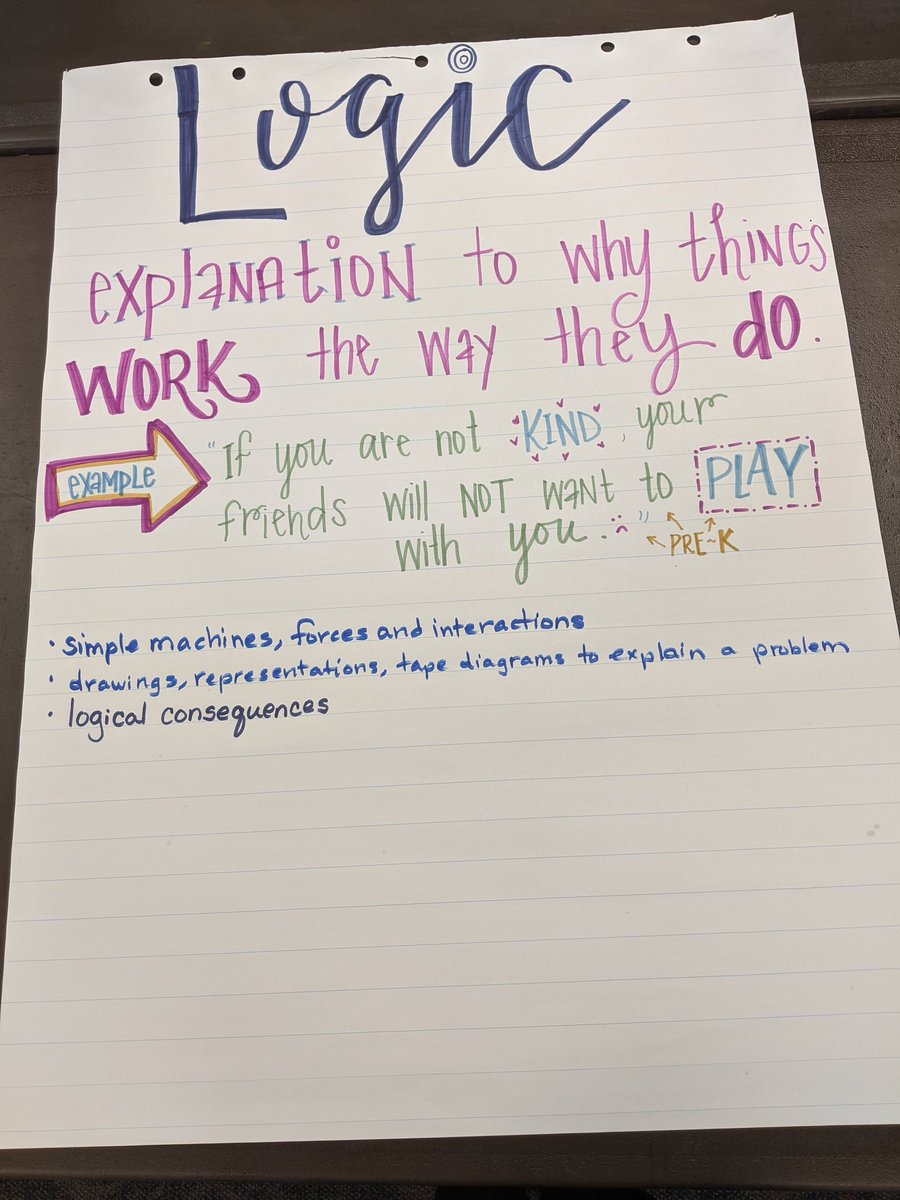 Logic
explanation to why things
WORK the way they do.
example
"If you are not KIND, your
friends will NOT want to PLAY
with you. :("
PRE-K
• simple machines, forces and interactions
• drawings, representations, tape diagrams to explain a problem
• logical consequences